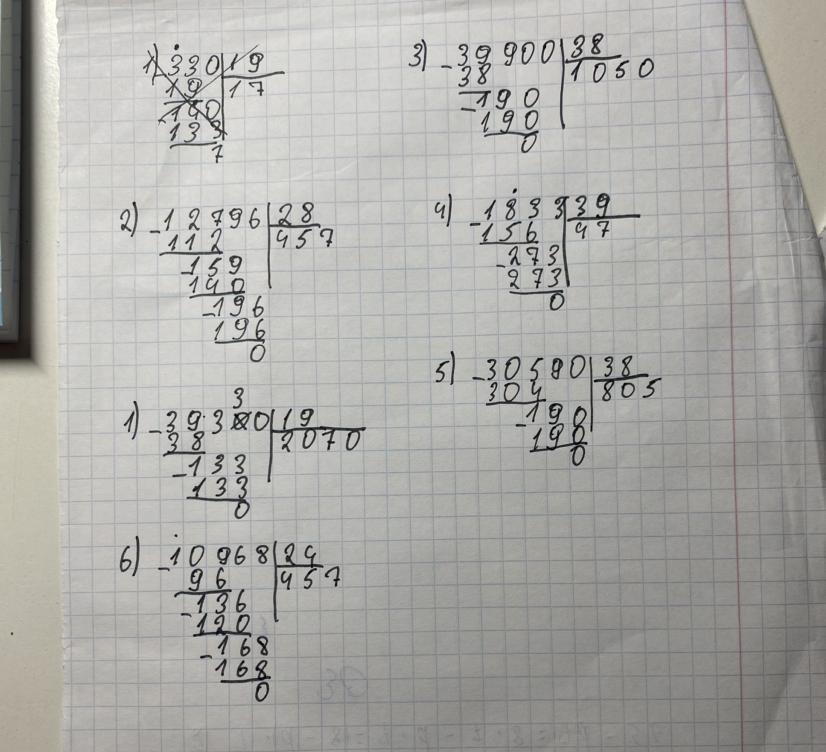 1) -330 | 19
19 | 17
140
133
7
2) -12796 | 28
112 | 457
-159
140
-196
196
0
1) -39330 | 19
38 | 2070
-133
133
0
6) -10968 | 24
96 | 457
-136
120
-168
168
0
3) -39900 | 38
38 | 1050
-190
190
0
4) -1833 | 39
156 | 47
-273
273
0
5) -30590 | 38
304 | 805
-190
190
0